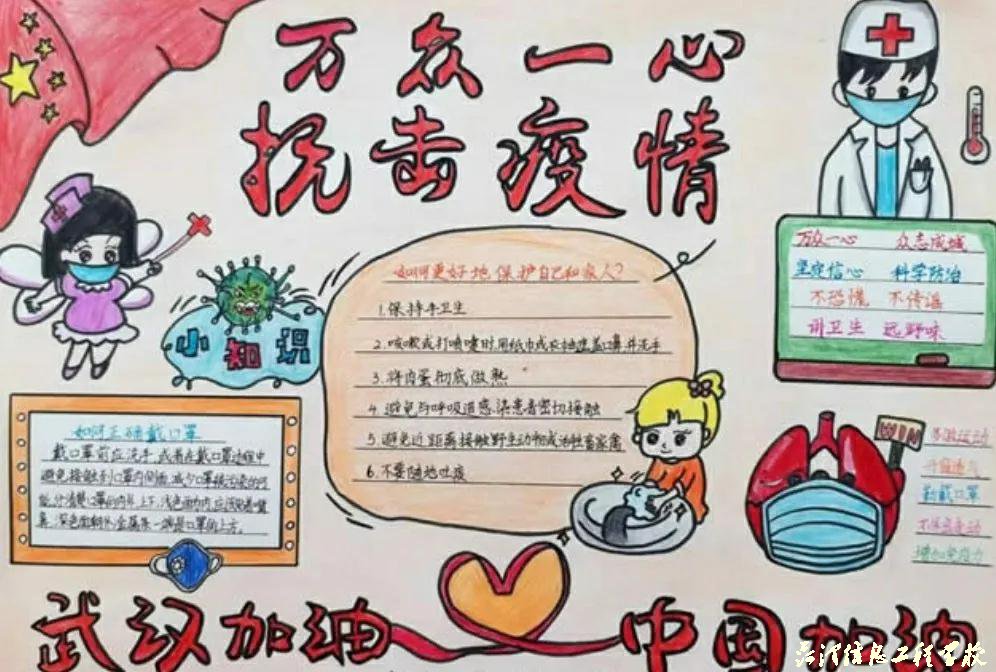 万众一心
抗击疫情
万众一心 众志成城
坚定信心 科学防治
不恐慌 不传谣
讲卫生 远野味
如何更好地保护自己和家人?
1.保持手卫生
2.咳嗽或打喷嚏时,用纸巾或衣袖遮盖口鼻,并洗手
3.将肉蛋彻底做熟
4.避免与呼吸道感染患者密切接触
5.避免近距离接触野生动物或活牲畜家禽
6.不要随地吐痰
小知识
如何正确戴口罩
戴口罩前应洗手,或者在戴口罩过程中
避免接触到口罩内侧面,减少口罩被污染的可
能,分清楚口罩的内外、上下,浅色面为内,应该贴着嘴
鼻,深色面朝外,金属条一端是口罩的上方。
WIN
开窗透气
勤戴口罩
增加免疫力
武汉加油
中国加油
信息工程学校